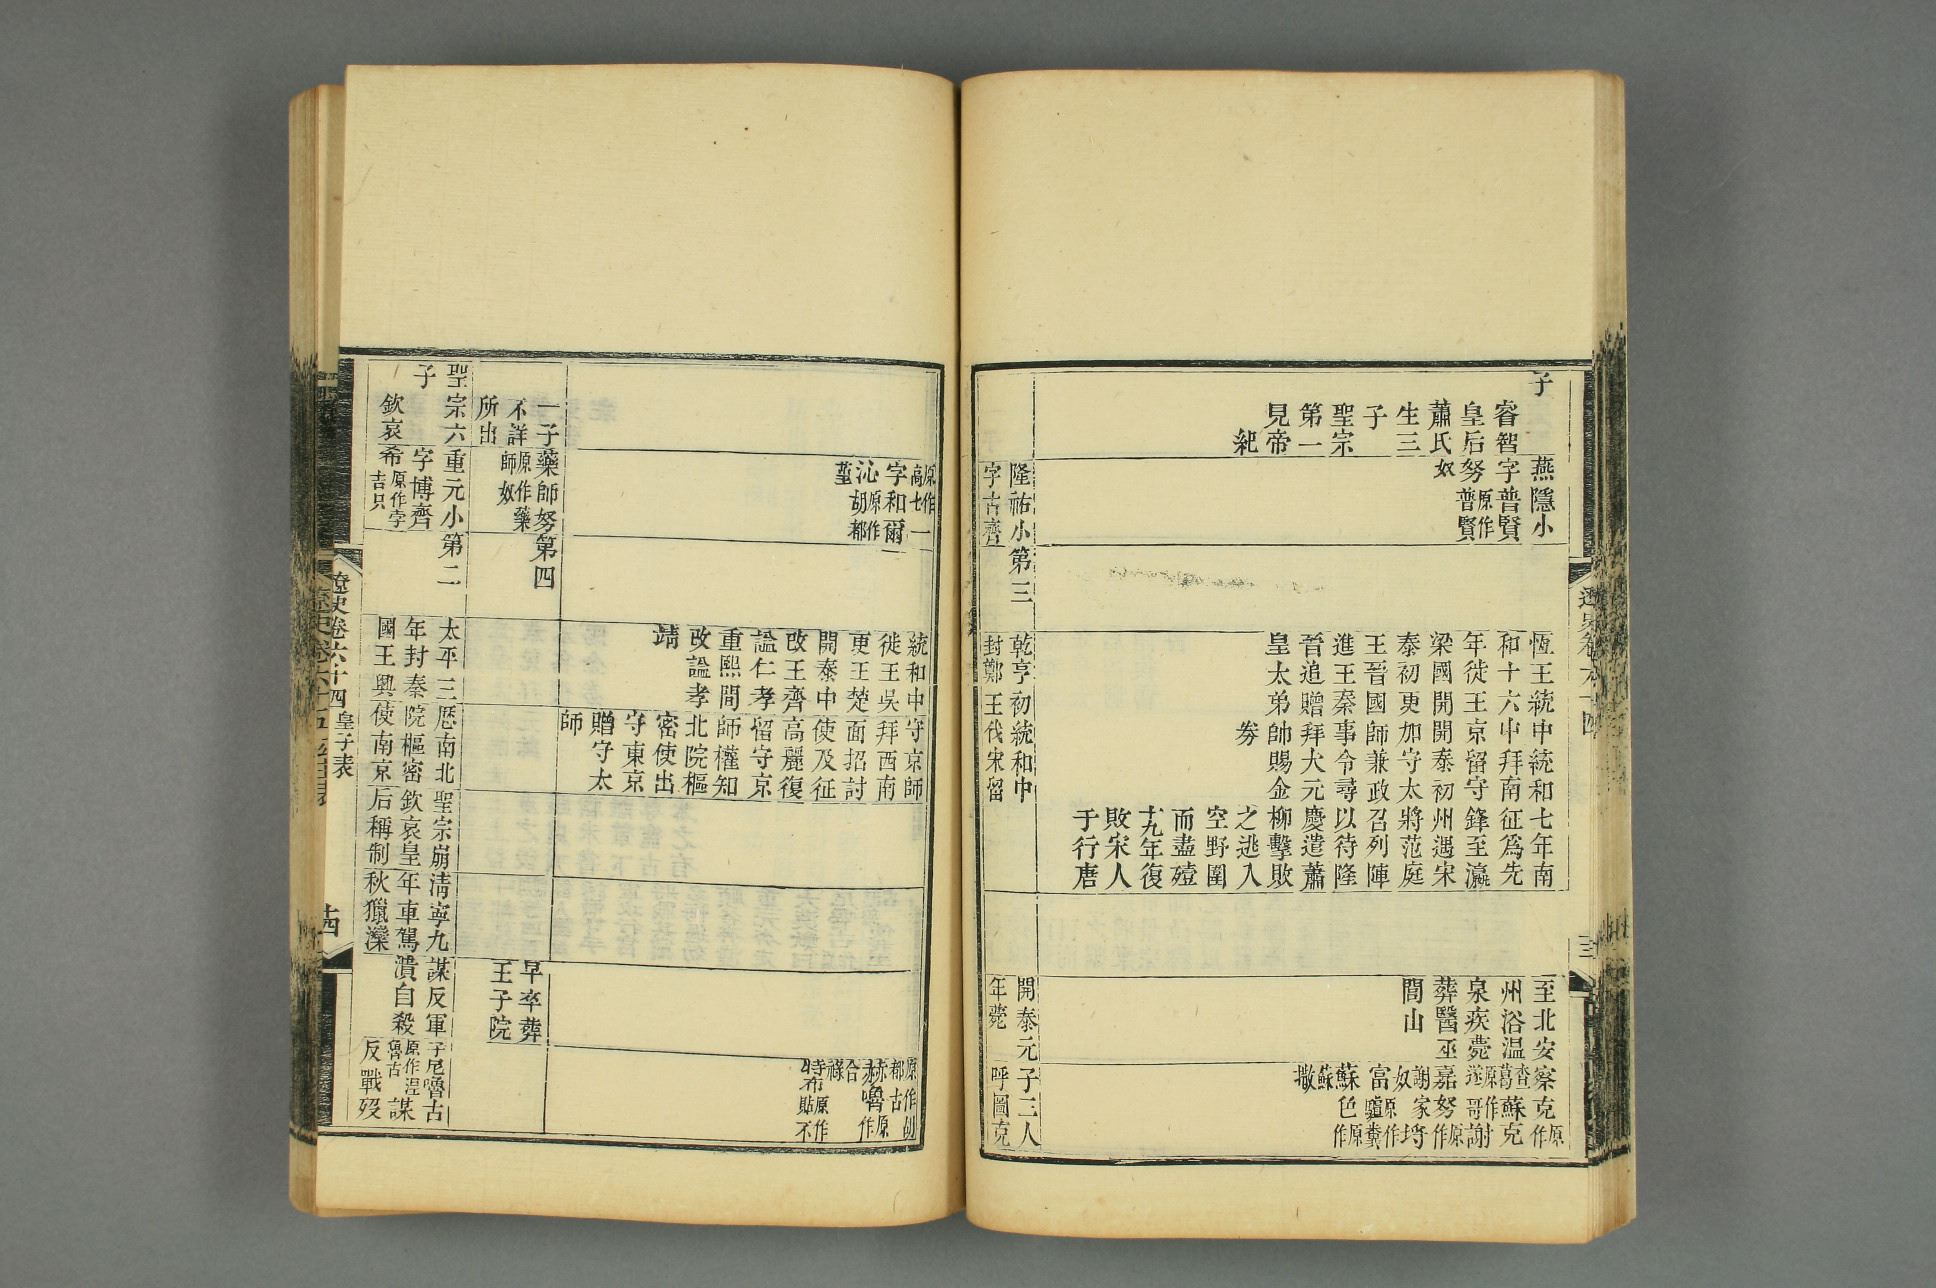 子
睿智
皇后
蕭氏
生三
子
聖宗
第一
見帝
紀
燕隱小
字普賢
努原作普賢
奴
恆王統
和十六
年徙王
梁國開
泰初更
王晉國
進王秦
晉追贈
皇太弟
中統和
中拜南
京留守
開泰初
加守太
師兼政
事令尋
拜大元
帥賜金
劵
七年南
征爲先
鋒至瀛
州遇宋
將范庭
召列陣
以待隆
慶遣蕭
柳擊敗
之逃入
空野圍
而盡殪
十九年復
敗宋人
于行唐
至北安
州浴温
泉疾薨
葬醫巫
閭山
察克原作
查葛蘇克
原作遂哥謝
嘉努原作
謝家奴
富
原作驢糞
蘇色原作
蘇撒
隆祐小
字古齊
第三
乾亨初
封鄭王
統和中
伐宋留
開泰元
年薨
子三人
呼圖克
原作高七一
字和爾
沁原作胡都
堇
統和中
徙王吳
更王楚
開泰中
改王齊
諡仁孝
重熙間
改諡孝
靖
守京師
拜西南
面招討
使及征
高麗復
留守京
師權知
北院樞
密使出
守東京
贈守太
師
原作胡都古
赫嚕原作
合祿
特布原作貼不
一子
不詳
所出
藥師努
原作藥師奴
第四
早卒葬
王子院
聖宗六
子
欽哀
重元小
字博齊
希原作孛吉只
第二
太平三
年封秦
國王興
歷南北
院樞密
使南京
聖宗崩
欽哀皇
后稱制
清寧九
年車駕
秋獵灤
謀反軍
潰自殺
子尼嚕古
原作湼魯古謀
反戰歿
遼史卷六十四 皇子表
十四